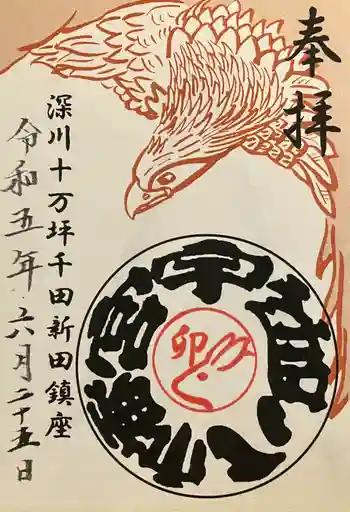 奉拝
宇迦八幡宮
卯
深川十万坪千田新田鎮座
令和五年六月二十五日